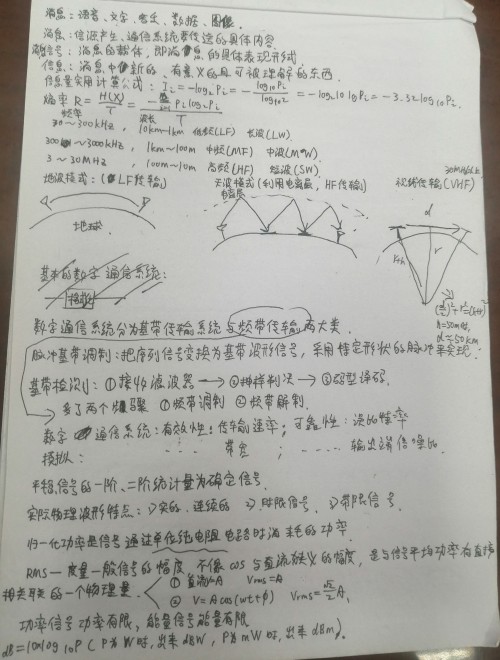 消息：语音、文字、音乐、数据、图像.
消息：信源产生、通信系统要传送的具体内容.
信号：消息的载体，即消息的具体表现形式
信息：消息中新的、有意义的且可被理解的东西.
信息量实用计算公式：Ii = -log₂Pi = -log₁₀Pi/log₁₀2 = -log₂10 log₁₀Pi = -3.32log₁₀Pi.
熵率 R = H(X)/T = -Σ Pi log₂Pi / T
频率 波长
30~300kHz, 10km~1km 低频(LF) 长波(LW)
300~3000kHz, 1km~100m 中频(MF) 中波(MW).
3~30MHz, 100m~10m 高频(HF) 短波(SW).
30MHz以上
地波模式：(LF传输) 天波模式(利用电离层，HF传输) 视线传输(VHF)
电离层
d
地球
r+h
r
(d/2)²+r²=(r+h)²
h=50m时,
d≈50km
基本的数字通信系统：
数字通信系统分为基带传输系统与频带传输两大类.
脉冲基带调制：把序列信号变换为基带波形信号，采用特定形状的脉冲来实现.
基带检测：①接收滤波器 → ②抽样判决 → ③码型译码.
多了两个步骤 ①频带调制 ②频带解制.
数字通信系统：有效性：传输速率；可靠性：误码率
模拟：---- 带宽 ；---- 输出端信噪比.
平稳信号的一阶、二阶统计量为确定信号.
实际物理波形特点：①实的、连续的 ②时限信号 ③带限信号.
归一化功率是信号通过单位纯电阻电路时消耗的功率.
RMS—度量一般信号的幅度，不像cos与直流狭义的幅度，是与信号平均功率有直接
相关联的一个物理量.
①直流V=A Vrms=A
② V=Acos(wt+φ) Vrms=√2/2 A.
功率信号功率有限，能量信号能量有限
dB=10×log₁₀P (P为W时，出来dBW，P为mW时，出来dBm).